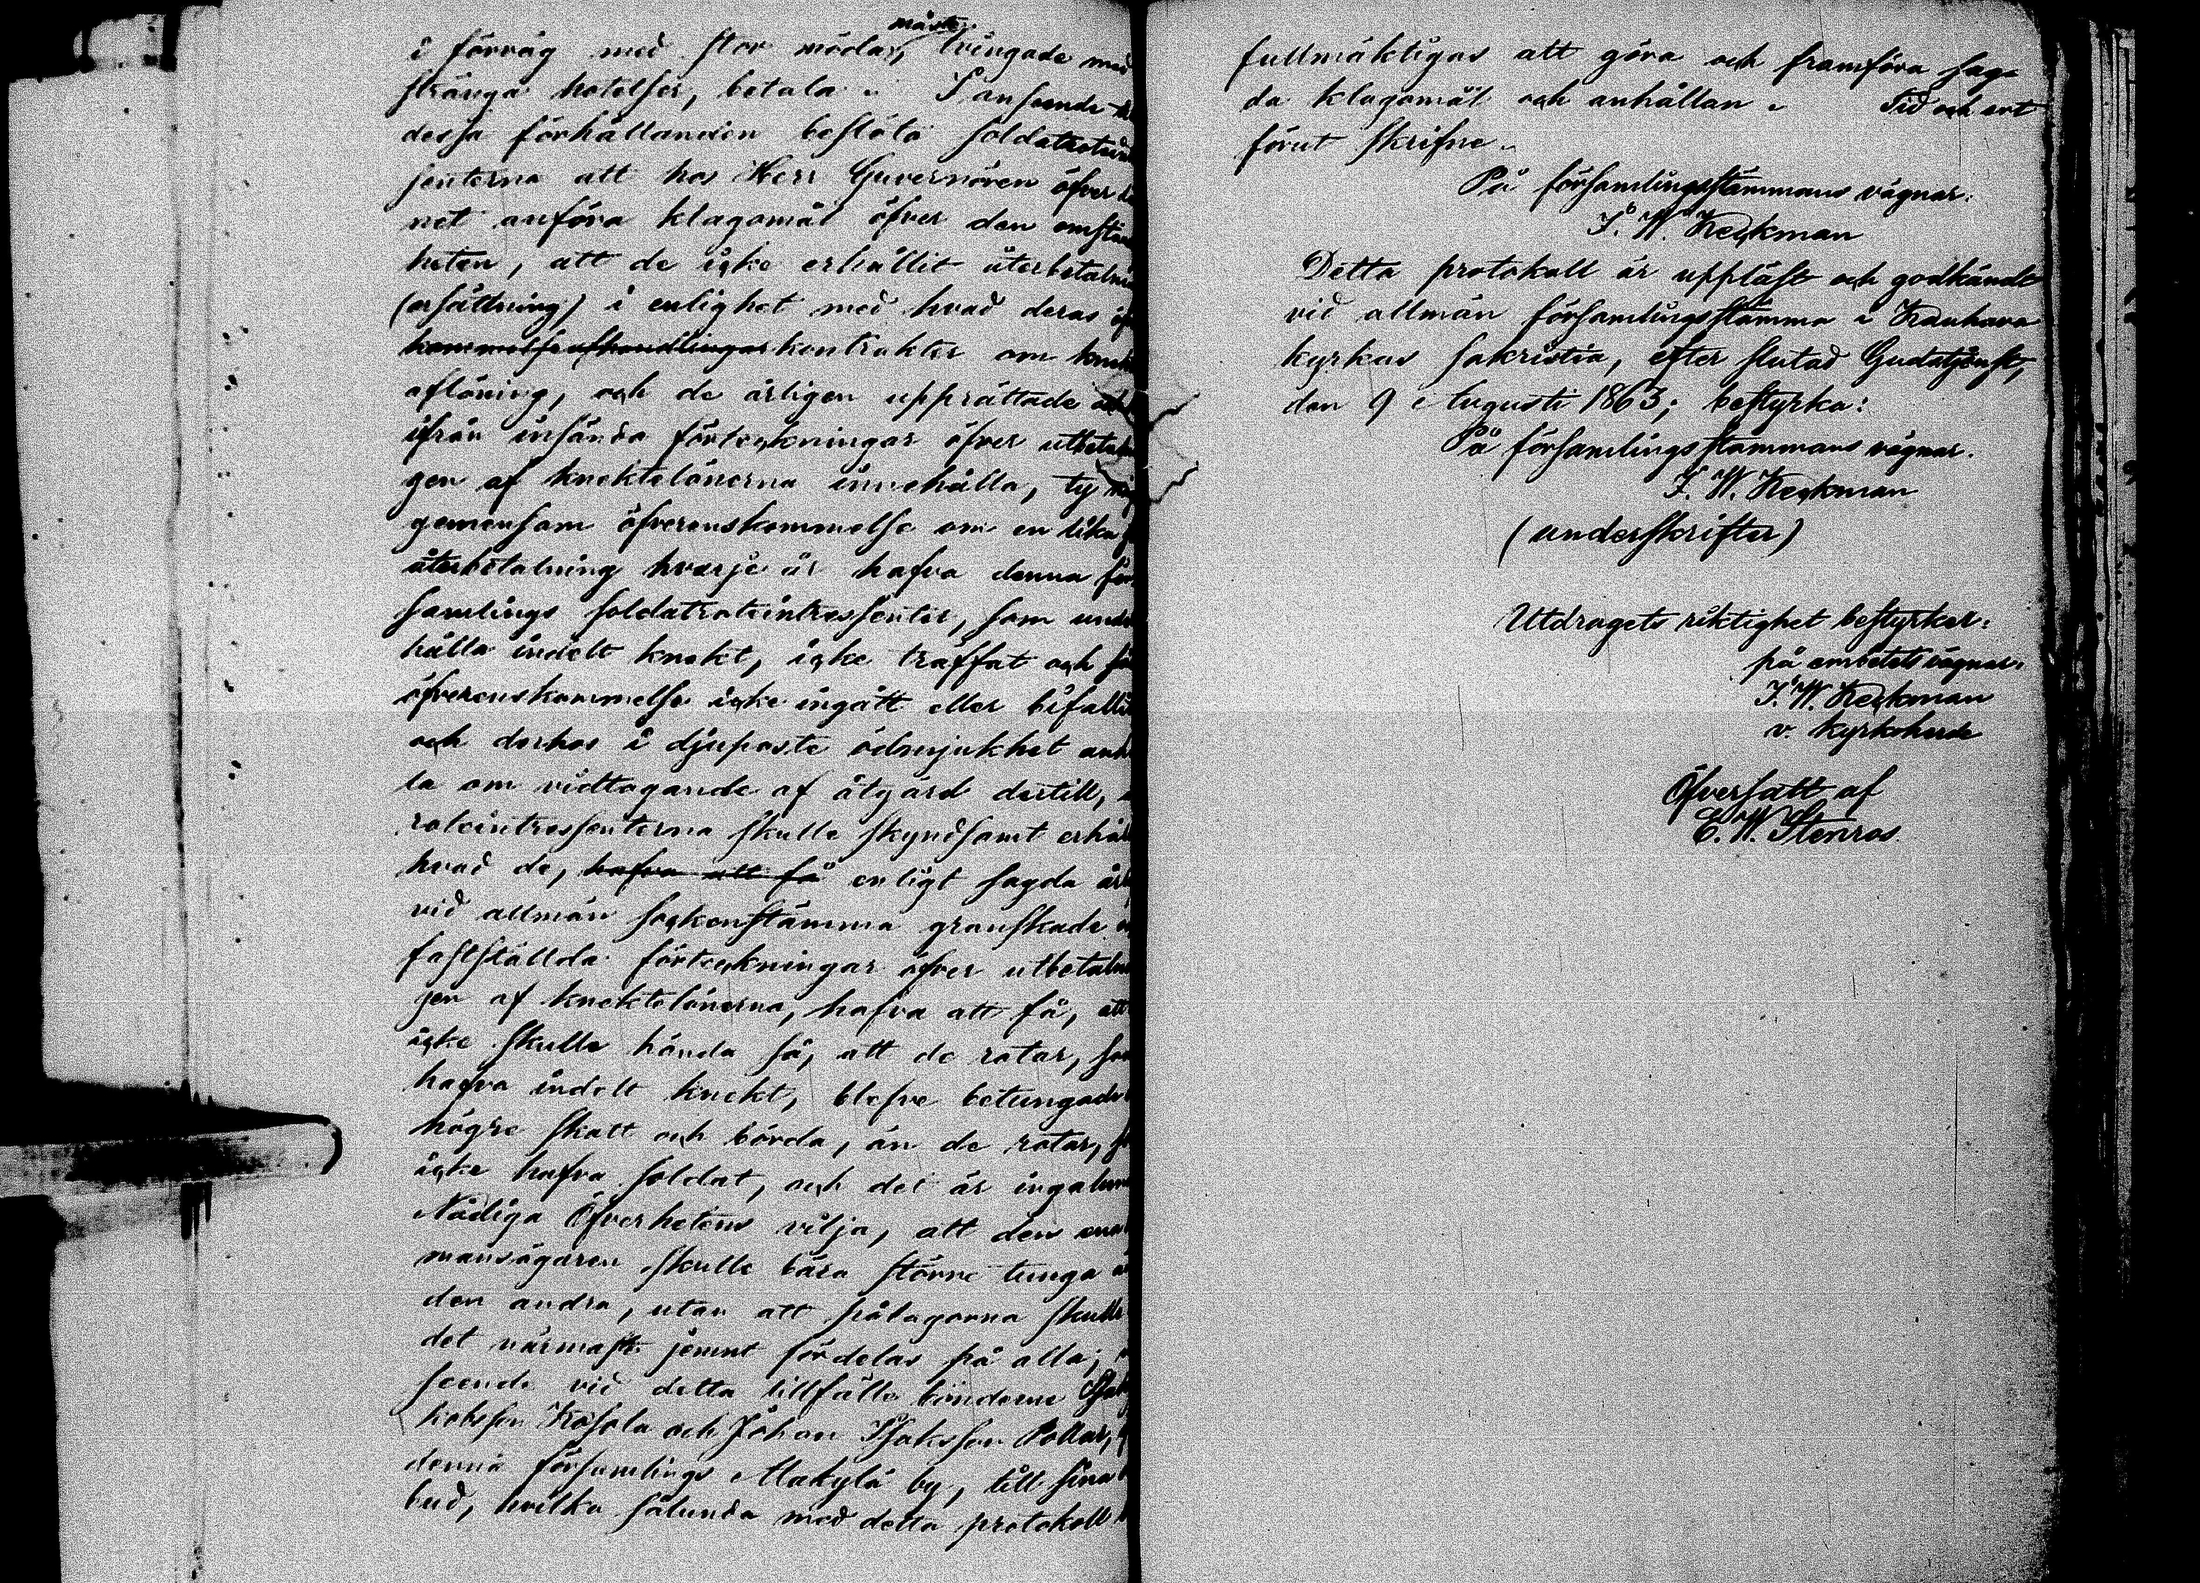 måste
i förväg med stor möda, tvingade med
stränga hotelser, betala. I anseende
dessa förhållanden beslöto soldatrotein
senterna att hos Herr Guvernören öfver
net anföra klagomål öfver den omstän
heten, att de icke erhållit återbetalni
(ersättning) i enlighet med hvad deras öfv
kommelseafhandlingar kontrakter om knekt
aflöning, och de årligen upprättade
ifrån insända förteckningar öfver utbetaln
gen af knektelönerna innehålla, ty någ
gemensam öfverenskommelse om en lika
återbetalning hvarje år hafva denna för
samlings soldatroteintressenter, som unde
hålla indelt knekt, icke träffat och så
öfverenskommelse icke ingått eller bifallit
och derhos i djupaste ödmjukhet anh
la om vidtagande af åtgärd dertill,
roteintressenterna skulle skyndsamt erhål
hvad de, hafva att få enligt sagda årl
vid allmän sockenstämma granskade o
fastställda förteckningar öfver utbetaln
gen af knektelönerna, hafva att få, att
icke skulle hända så, att de rotar, som
hafva indelt knekt, blefve betungade
högre skatt och börda, än de rotar, so
icke hafva soldat, och det är ingalun
Nådiga Öfverhetens vilja, att den ena
mansägaren skulle bära större tunga ä
den andra, utan att pålagorna skulle
det närmaste jemnt fördelas på alla;
seende vid detta tillfälle bönderne
kobsson Kosola och Johan Isaksson Pollar,
denna församlings Alakylä by, till sina
bud, hvilka sålunda med detta protokoll
fullmäktigas att göra och framföra sag-
da klagomål och anhållan. Tid och ort
förut skrifne.
På församlingsstämmans vägnar:
J. W. Keckman
Detta protokoll är uppläst och godkändt
vid allmän församlingsstämma i Kauhava
kyrkas sakristia, efter slutad Gudstjenst,
den 9 Augusti 1863; bestyrka:
På församlingsstämmans vägnar.
J. W. Keckman
(underskrifter)
Utdragets riktighet bestyrker:
på embetets vägnar:
J. W. Keckman
v. kyrkoherde
Öfversatt af
E. W. Stenros